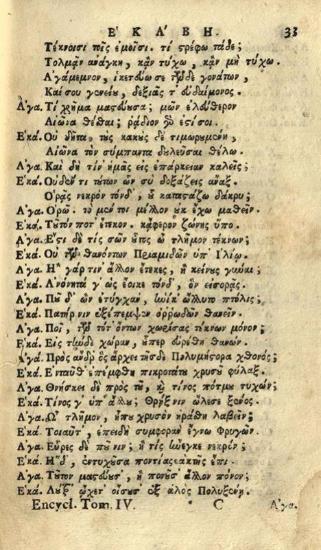 ΕΚΑΒΗ. 33
Τέκνοισι τοῖς ἐμοῖσι. τί στρέφω τάδε;
Τολμᾶν ἀνάγκη, κἂν τύχω, κἂν μὴ τύχω.
Ἀγάμεμνον, ἱκετεύω σε τῶνδε γουνάτων,
Καὶ σοῦ γενείου, δεξιᾶς τ' εὐδαίμονος.
Ἀγα. Τί χρῆμα μαστεύουσα; μῶν ἐλεύθερον
Αἰῶνα θέσθαι; ῥᾴδιον γάρ ἐστί σοι.
Ἑκά. Οὐ δῆτα, τοὺς κακοὺς δὲ τιμωρουμένη,
Αἰῶνα τὸν σύμπαντα δουλεῦσαι θέλω.
Ἀγα. Καὶ δὴ τίν' ἡμᾶς εἰς ἐπάρκειαν καλεῖς;
Ἑκά. Οὐδέν τι τούτων ὧν σὺ δοξάζεις ἄναξ.
Ὁρᾷς νεκρὸν τόνδ', οὗ καταστάζω δάκρυ;
Ἀγα. Ὁρῶ. τὸ μέντοι μέλλον οὐκ ἔχω μαθεῖν.
Ἑκά. Τοῦτόν ποτ' ἔτεκον. κἄφερον ζώνης ὕπο.
Ἀγα. Ἔστι δὲ τίς σῶν οὗτος ὦ τλῆμον τέκνων;
Ἑκά. Οὐ τῶν θανόντων Πριαμιδῶν ὑπ' Ἰλίῳ.
Ἀγα. Ἦ γάρ τιν' ἄλλον ἔτεκες, ἢ κείνους γύναι;
Ἑκά. Ἀνόνητά γ' ὡς ἔοικε τόνδ', ὃν εἰσορᾷς.
Ἀγα. Ποῦ δ' ὢν ἐτύγχαν', ἡνίκ' ὤλλυτο πτόλις;
Ἑκά. Πατήρ νιν ἐξέπεμψεν ὀῤῥωδῶν θανεῖν.
Ἀγα. Ποῖ, τῶν τότ' ὄντων χωρίσας τέκνων μόνον;
Ἑκά. Εἰς τήνδε χώραν, ὗπερ εὑρέθη θανών.
Ἀγά. Πρὸς ἄνδρ' ὃς ἄρχει τῆσδε Πολυμήστορα χθονός;
Ἑκά. Ἐνταῦθ' ἐπέμφθη πικροτάτου χρυσοῦ φύλαξ.
Ἀγα. Θνήσκει δὲ πρὸς τοῦ, καὶ τίνος πότμου τυχών;
Ἑκά. Τίνος γ' ὑπ' ἄλλου; Θρήξ νιν ὤλεσε ξένος.
Ἀγα. Ὦ τλῆμον, ἦπου χρυσὸν ἠράσθη λαβεῖν;
Ἑκά. Τοιαῦτ', ἐπειδὴ συμφορὰν ἔγνω Φρυγῶν.
Ἀγα. Εὗρες δὲ ποῦ νιν; ἢ τίς ἤνεγκε νεκρόν;
Ἑκά. Ἥδ', ἐντυχοῦσα ποντίας ἀκτῆς ἔπι.
Ἀγα. Τοῦτον ματεύουσ', ἢ πονοῦσ' ἄλλον πόνον;
Ἑκά. Λούτρ' ᾤχετ' οἴσουσ' ἐξ ἁλὸς Πολυξένῃ.
Encycl. Tom. IV. C Ἀγα.